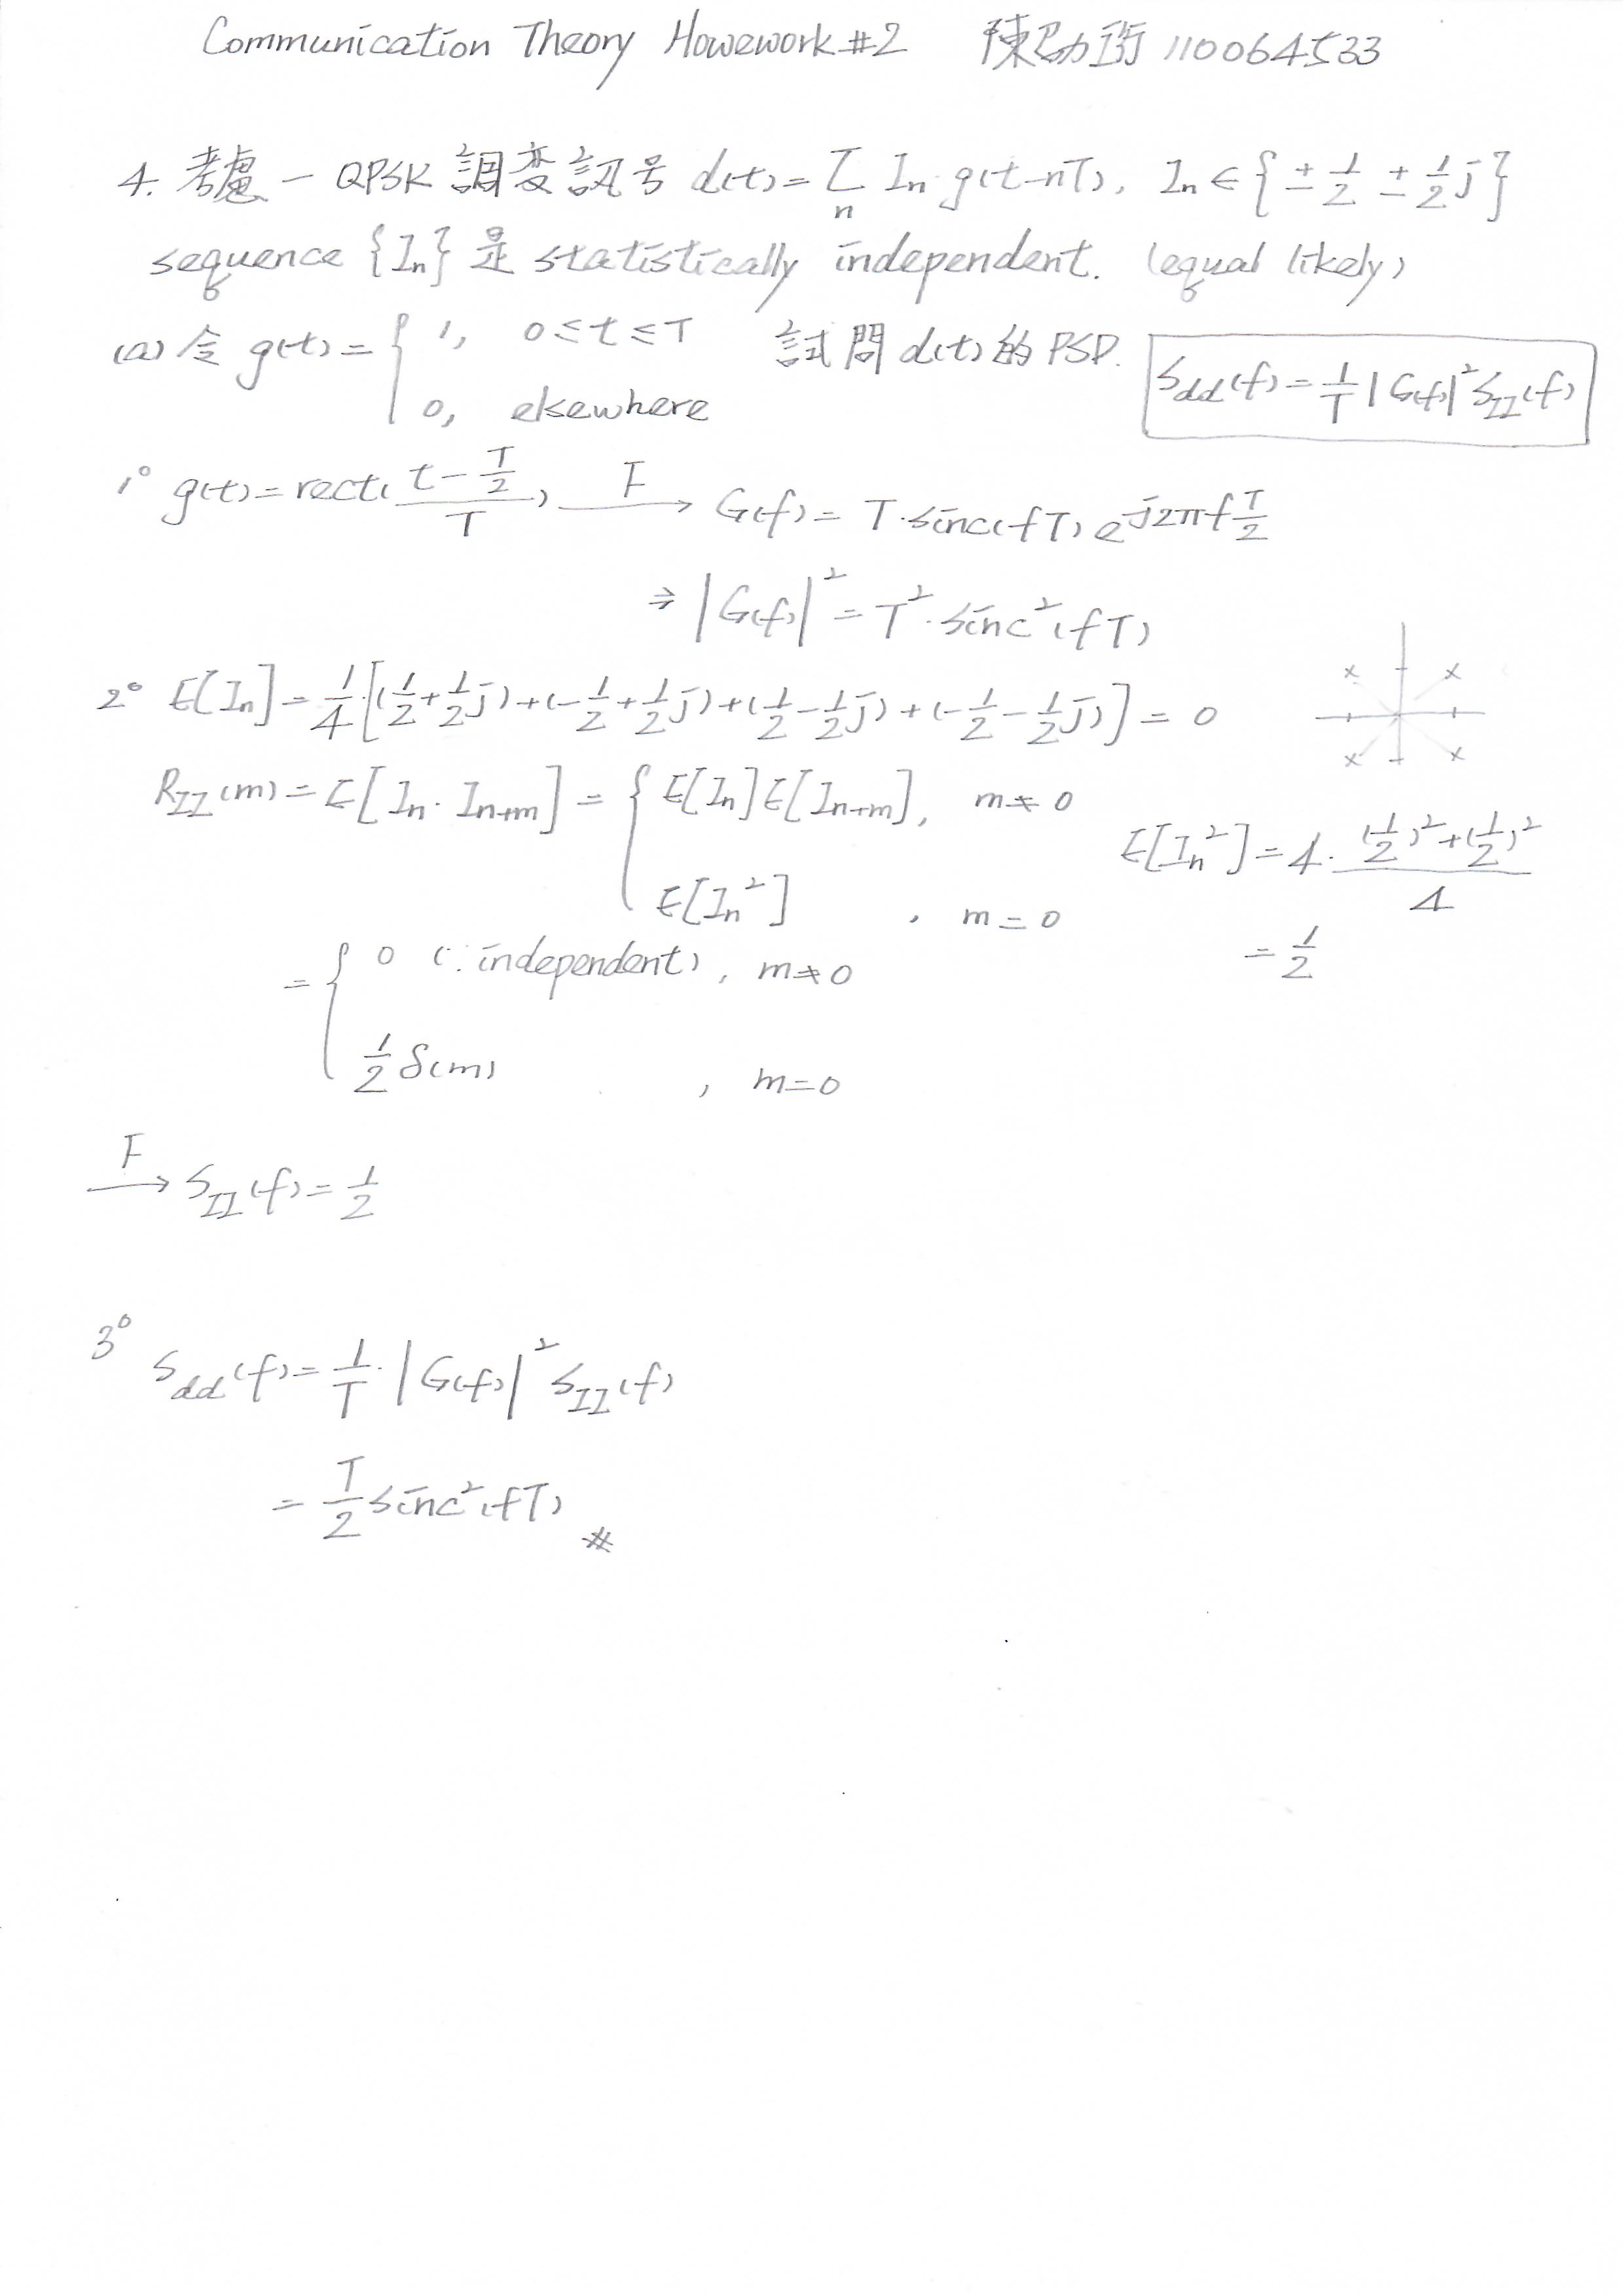 Communication Theory Howework #2 陳劭珩 110064533
4. 考慮一 QPSK 調变訊号 d(t) = Σ_n In·g(t-nT), In ∈ {± 1/2 ± 1/2 j}
sequence {In} 是 statistically independent. (equal likely)
(a) 令 g(t) = { 1, 0≤t≤T 試問 d(t) 的 PSD. Sdd(f) = 1/T |G(f)|² SII(f)
0, elsewhere
1° g(t) = rect( (t - T/2)/T ) —F→ G(f) = T·sinc(fT) e^{j2πf T/2}
⇒ |G(f)|² = T²·sinc²(fT)
2° E[In] = 1/4 [(1/2 + 1/2 j) + (-1/2 + 1/2 j) + (1/2 - 1/2 j) + (-1/2 - 1/2 j)] = 0
RII(m) = E[In·In+m] = { E[In]E[In+m], m≠0
E[In²], m=0
E[In²] = 4· ((1/2)² + (1/2)²)/4
= 1/2
= { 0 (∵ independent), m≠0
1/2 δ(m), m=0
—F→ SII(f) = 1/2
3° Sdd(f) = 1/T·|G(f)|² SII(f)
= T/2 sinc²(fT) #